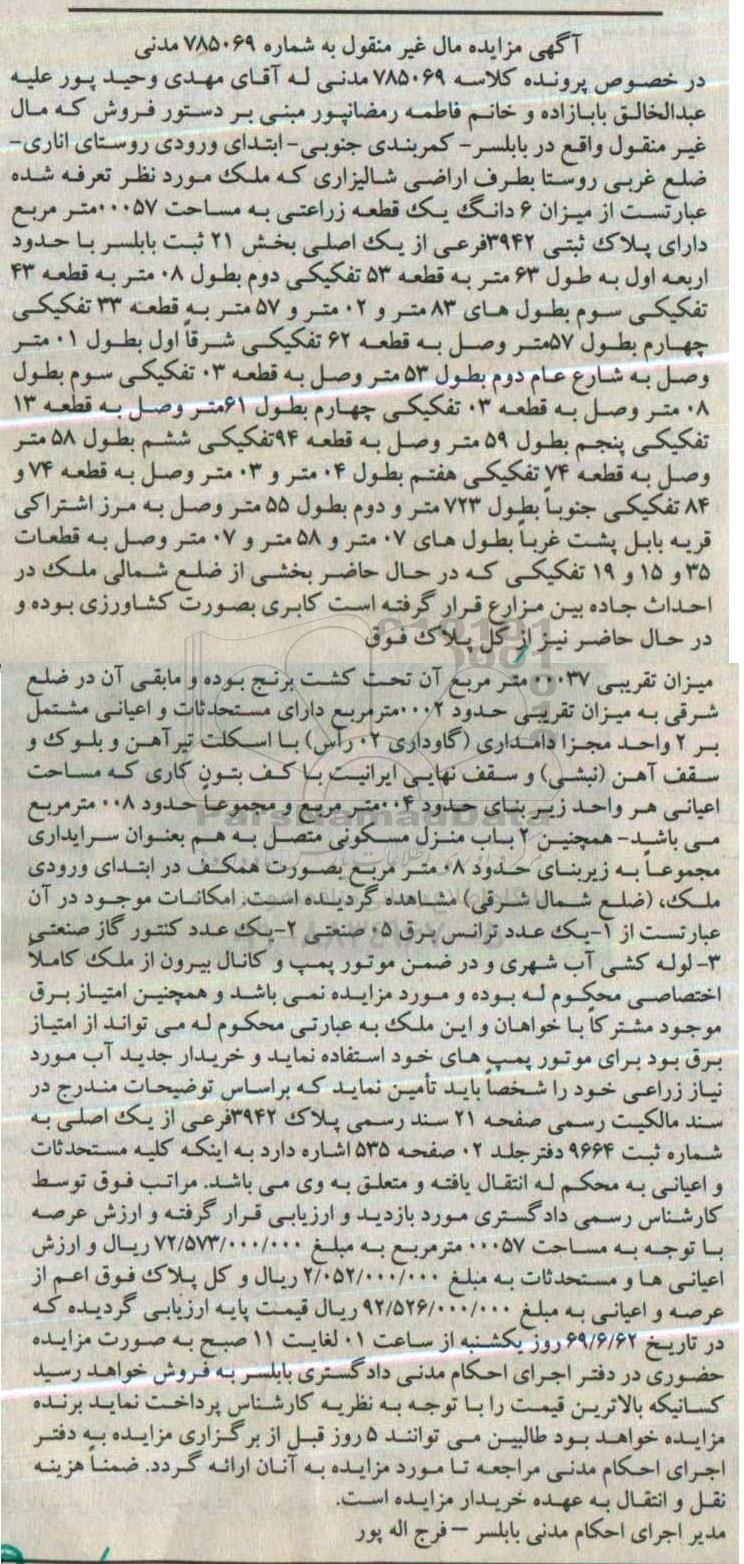 آگهی مزایده مال غیر منقول به شماره ۷۸۵۰۶۹ مدنی
در خصوص پرونده کلاسه ۷۸۵۰۶۹ مدنی له آقای مهدی وحید پور علیه
عبدالخالق بابازاده و خانم فاطمه رمضانپور مبنی بر دستور فروش که مال
غیر منقول واقع در بابلسر- کمربندی جنوبی- ابتدای ورودی روستای اناری-
ضلع غربی روستا بطرف اراضی شالیزاری که ملک مورد نظر تعرفه شده
عبارتست از میزان ۶ دانگ یک قطعه زراعتی به مساحت ۰۰۰۵۷متر مربع
دارای پلاک ثبتی ۳۹۴۲فرعی از یک اصلی بخش ۲۱ ثبت بابلسر با حدود
اربعه اول به طول ۶۳ متر به قطعه ۵۳ تفکیکی دوم بطول ۰۸ متر به قطعه ۴۳
تفکیکی سوم بطول های ۸۳ متر و ۰۲ متر و ۵۷ متر به قطعه ۳۳ تفکیکی
چهارم بطول ۵۷متر وصل به قطعه ۶۲ تفکیکی شرقاً اول بطول ۰۱ متر
وصل به شارع عام دوم بطول ۵۳ متر وصل به قطعه ۰۳ تفکیکی سوم بطول
۰۸ متر وصل به قطعه ۰۳ تفکیکی چهارم بطول ۶۱متر وصل به قطعه ۱۳
تفکیکی پنجم بطول ۵۹ متر وصل به قطعه ۹۴تفکیکی ششم بطول ۵۸ متر
وصل به قطعه ۷۴ تفکیکی هفتم بطول ۰۴ متر و ۰۳ متر وصل به قطعه ۷۴ و
۸۴ تفکیکی جنوباً بطول ۷۲۳ متر و دوم بطول ۵۵ متر وصل به مرز اشتراکی
قریه بابل پشت غرباً بطول های ۰۷ متر و ۵۸ متر و ۰۷ متر وصل به قطعات
۳۵ و ۱۵ و ۱۹ تفکیکی که در حال حاضر بخشی از ضلع شمالی ملک در
احداث جاده بین مزارع قرار گرفته است کابری بصورت کشاورزی بوده و
در حال حاضر نیز از کل پلاک فوق
میزان تقریبی ۰۰۰۳۷ متر مربع آن تحت کشت برنج بوده و مابقی آن در ضلع
شرقی به میزان تقریبی حدود ۰۰۰۲مترمربع دارای مستحدثات و اعیانی مشتمل
بر ۲ واحد مجزا دامداری (گاوداری ۰۲ رأس) با اسکلت تیرآهن و بلوک و
سقف آهن (نبشی) و سقف نهایی ایرانیت با کف بتون کاری که مساحت
اعیانی هر واحد زیر بنای حدود ۰۰۴متر مربع و مجموعاً حدود ۰۰۸ مترمربع
می باشد- همچنین ۲ باب منزل مسکونی متصل به هم بعنوان سرایداری
مجموعاً به زیربنای حدود ۰۸متر مربع بصورت همکف در ابتدای ورودی
ملک، (ضلع شمال شرقی) مشاهده گردیده است. امکانات موجود در آن
عبارتست از ۱-یک عدد ترانس برق ۰۵ صنعتی ۲-یک عدد کنتور گاز صنعتی
۳- لوله کشی آب شهری و در ضمن موتور پمپ و کانال بیرون از ملک کاملاً
اختصاصی محکوم له بوده و مورد مزایده نمی باشد و همچنین امتیاز برق
موجود مشترکاً با خواهان و این ملک به عبارتی محکوم له می تواند از امتیاز
برق بود برای موتور پمپ های خود استفاده نماید و خریدار جدید آب مورد
نیاز زراعی خود را شخصاً باید تأمین نماید که براساس توضیحات مندرج در
سند مالکیت رسمی صفحه ۲۱ سند رسمی پلاک ۳۹۴۲فرعی از یک اصلی به
شماره ثبت ۹۶۶۴ دفترجلد ۰۲ صفحه ۵۳۵ اشاره دارد به اینکه کلیه مستحدثات
و اعیانی به محکم له انتقال یافته و متعلق به وی می باشد. مراتب فوق توسط
کارشناس رسمی دادگستری مورد بازدید و ارزیابی قرار گرفته و ارزش عرصه
با توجه به مساحت ۰۰۰۵۷ مترمربع به مبلغ ۷۲/۵۷۳/۰۰۰/۰۰۰ ریال و ارزش
اعیانی ها و مستحدثات به مبلغ ۲/۰۵۲/۰۰۰/۰۰۰ ریال و کل پلاک فوق اعم از
عرصه و اعیانی به مبلغ ۹۲/۵۲۶/۰۰۰/۰۰۰ ریال قیمت پایه ارزیابی گردیده که
در تاریخ ۶۹/۶/۶۲ روز یکشنبه از ساعت ۰۱ لغایت ۱۱ صبح به صورت مزایده
حضوری در دفتر اجرای احکام مدنی دادگستری بابلسر به فروش خواهد رسید
کسانیکه بالاترین قیمت را با توجه به نظریه کارشناس پرداخت نماید برنده
مزایده خواهد بود طالبین می توانند ۵ روز قبل از برگزاری مزایده به دفتر
اجرای احکام مدنی مراجعه تا مورد مزایده به آنان ارائه گردد. ضمناً هزینه
نقل و انتقال به عهده خریدار مزایده است.
مدیر اجرای احکام مدنی بابلسر – فرج اله پور
ParsNamadData